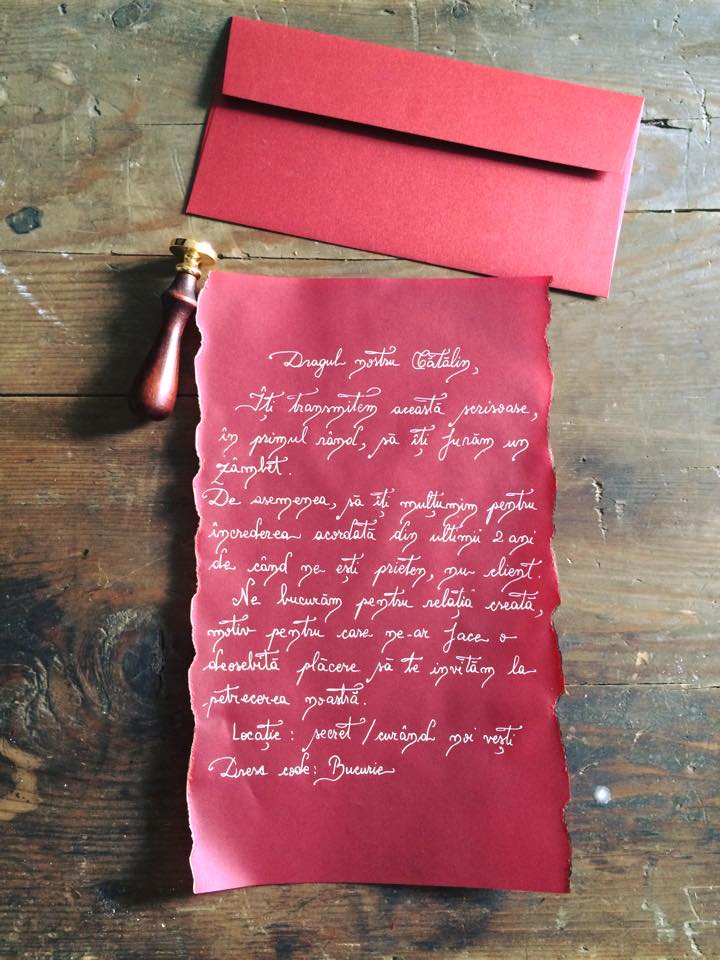 Dragul nostru Cătălin,
Îți transmitem această scrisoare,
în primul rând, să îți furăm un
zâmbet.
De asemenea, să îți mulțumim pentru
încrederea acordată din ultimii 2 ani
de când ne ești prieten, nu client.
Ne bucurăm pentru relația creată,
motiv pentru care ne-ar face o
deosebită plăcere să te invităm la
petrecerea noastră.
Locație : secret / curând noi vești
Dress code: Bucurie